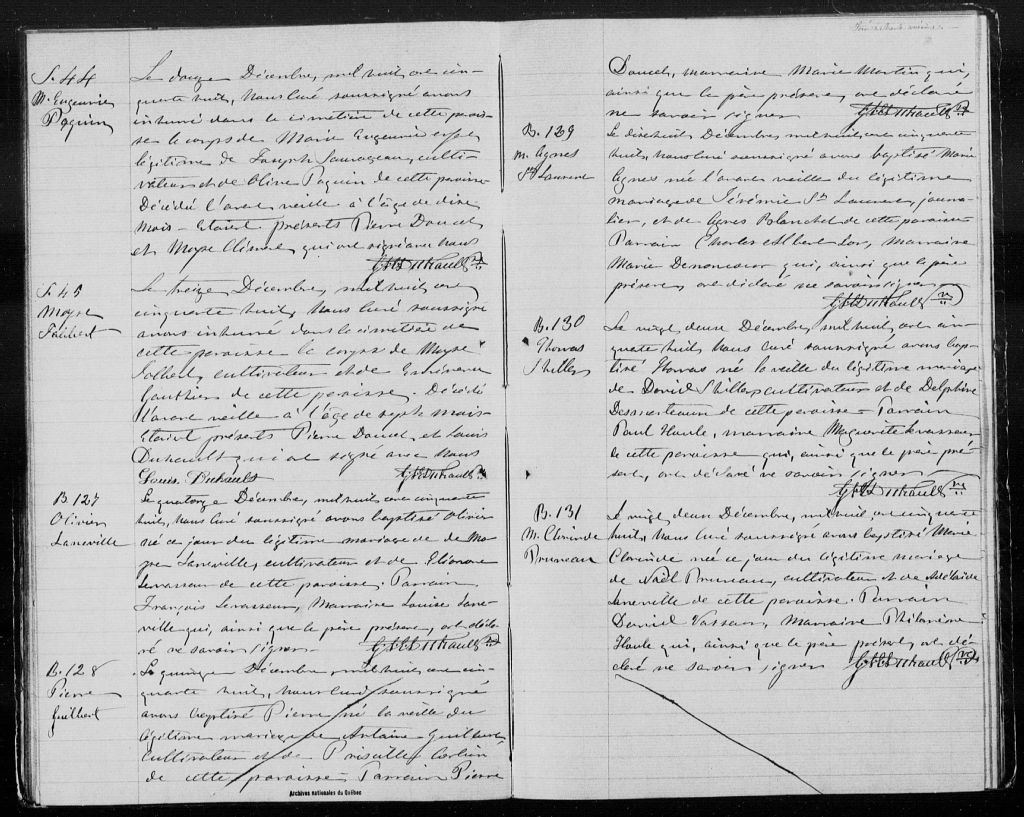 S. 44
M. Eugenie
Paquin
Le douze Décembre, mil huit cent cin-
quante huit, Nous Curé soussigné avons
inhumé dans le cimetière de cette parois-
se le corps de Marie Eugenie
légitime de Joseph Sauvageau, culti-
vateur et de Olive Paquin de cette paroisse
Décédé l'avant veille à l'âge de dix
Mois - Etaient présents Pierre Doucet
et Moyse qui ont signé avec nous
S. 45
Moyse
Le treize Décembre, mil huit cent
cinquante huit, Nous Curé soussigné
avons inhumé dans le cimetière de
cette paroisse le corps de Moyse
cultivateur et de
Gauthier de cette paroisse. Décédé
l'avant veille à l'âge de sept mois
Etaient présents Pierre Doucet, et Louis
Duhault qui ont signé avec nous
Louis Duhault
B. 127
Olivier
Laneville
Le quatorze Décembre, mil huit cent cinquante
huit, Nous Curé soussigné avons baptisé Olivier
né ce jour du légitime mariage de Mo-
yse Laneville, cultivateur et de Eléonore
Levasseur de cette paroisse. Parrain
François Levasseur, Marraine Louise Lane-
ville qui, ainsi que le père présent, ont décla-
ré ne savoir signer
B. 128
Pierre
Guilbert
Le quinze Décembre mil huit cent cin-
quante huit, Nous Curé soussigné
avons baptisé Pierre né la veille du
légitime mariage de Antoine Guilbert,
Cultivateur et de Priscille
de cette paroisse - Parrain Pierre
Archives nationales du Québec
Doucet, marraine Marie Martin qui,
ainsi que le père présent, ont déclaré
ne savoir signer
B. 129
M. Agnes
St Laurent
Le dix huit Décembre mil huit cent cinquante
huit, Nous Curé soussigné avons baptisé Marie
Agnes née l'avant veille du légitime
mariage de Jérémie St Laurent, journa-
lier, et de Agnes Blanchet de cette paroisse
Parrain Charles Albert Marraine
Marie qui, ainsi que le père
présent, ont déclaré ne savoir signer
B. 130
Thomas
Le vingt deux Décembre, mil huit cent cin-
quante huit, Nous Curé soussigné avons bap-
tisé Thomas né la veille du légitime mariage
de David cultivateur et de Delphine
Desmarteaux de cette paroisse - Parrain
Paul Houle, marraine Marguerite Levasseur
de cette paroisse qui, ainsi que le père pré-
sent, ont déclaré ne savoir signer
B. 131
M. Clorinde
Pruneau
Le vingt deux Décembre, mil huit cent cinquante
huit, Nous Curé soussigné avons baptisé Marie
Clorinde née ce jour du légitime mariage
de Noël Pruneau, cultivateur et de Adélaïde
Laneville de cette paroisse. Parrain
Daniel Marraine Philomène
Houle qui, ainsi que le père présent, ont dé-
claré ne savoir signer